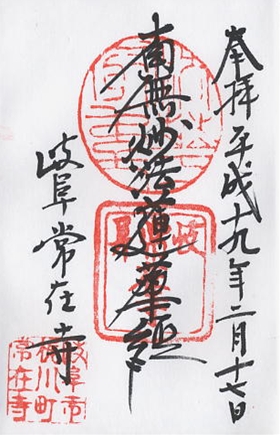 奉拝 平成十九年二月十七日
南無妙法蓮華経
岐阜 常在寺
岐阜市
梶川町
常在寺